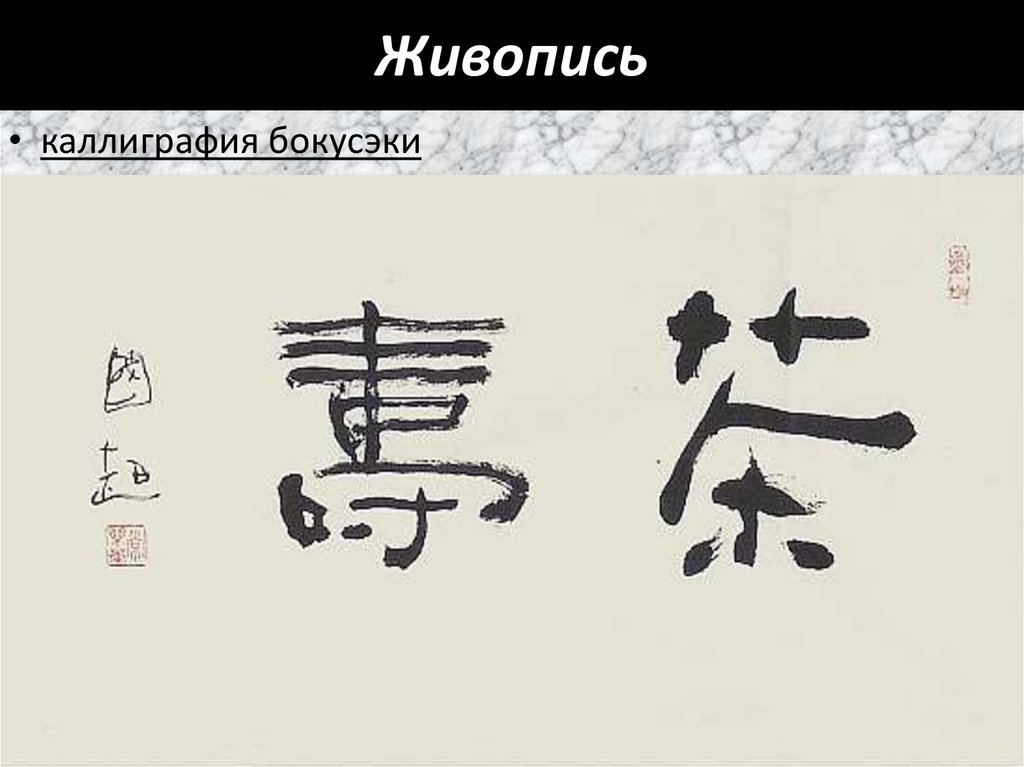 Живопись
• каллиграфия бокусэки
茶壽
國超